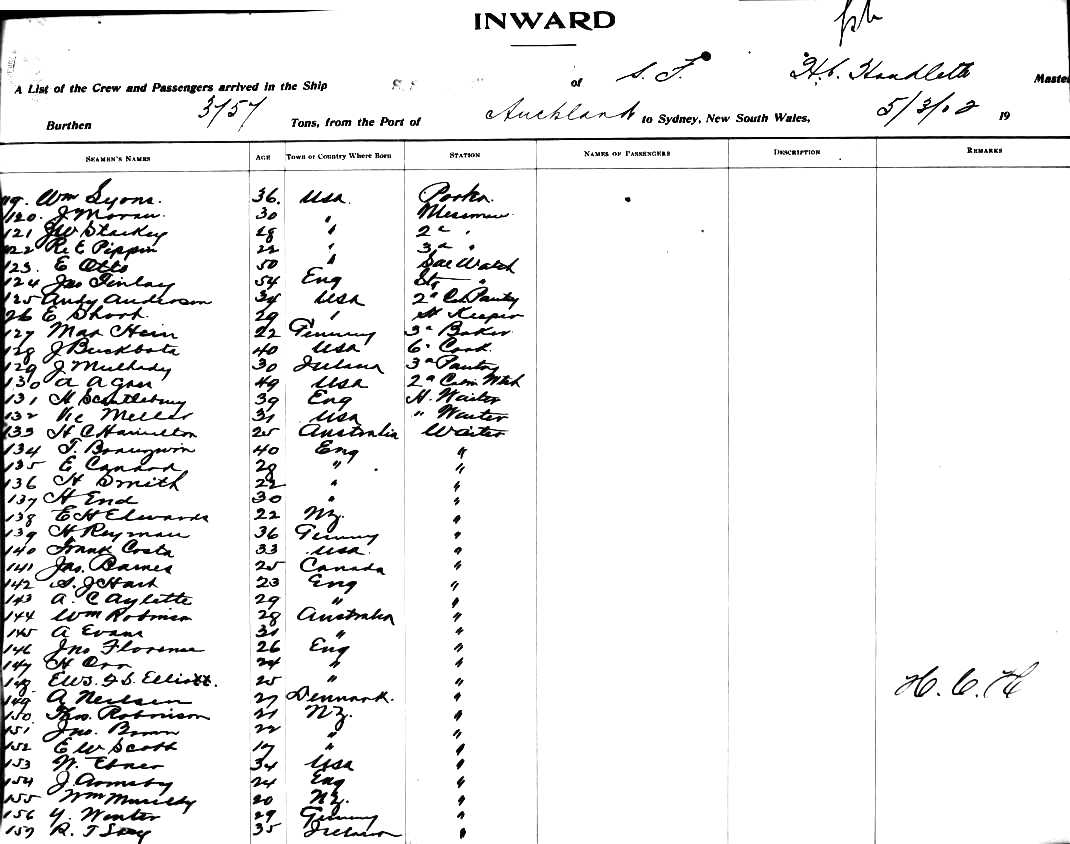 INWARD
A List of the Crew and Passengers arrived in the Ship S.S. of S. F. Master
Burthen 3757 Tons, from the Port of Auckland to Sydney, New South Wales, 5/3/02 19
SEAMEN'S NAMES AGE Town or Country Where Born STATION NAMES OF PASSENGERS DESCRIPTION REMARKS
Wm Lyons 36 USA
120. J Moran 30 "
121 JW Starkey 28 " 2d "
122 R. E Pippin 22 " 3d "
123. E Otto 50 "
124 Jas Finlay 54 Eng
125 Andy Anderson 34 USA 2d Pantry
26 E Short 29 " St Keeper
127 Max Hein 22 Germny 3d Baker
128 J 40 USA 6 Cook
129 J 30 Ireland 3d Pantry
130 A 49 USA 2d Cabin Wtch
131 H 39 Eng H. Waiter
132 Vic Meller 31 USA " Waiter
133 H C Hamilton 25 Australia Waiter
134 T. 40 Eng "
135 E 28 " "
136 H Smith 22 " "
137 H End 30 " "
138 E H Edwards 22 NZ. "
139 H Reyman 36 Germny "
140 Frank Costa 33 USA "
141 Jas. Barnes 25 Canada "
142 S. J Hart 23 Eng "
143 A. C Aylette 29 " "
144 Wm Robinson 28 Australia "
145 A Evans 31 " "
146 Jno Florence 26 Eng "
147 H Orr 24 " "
148 Elliott. 25 " "
149 A Neilsen 27 Denmark. " H. C. H
150 Thos. Robinson 21 NZ. "
151 Jno. Brown 22 " "
152 E W Scott 17 " "
153 W. Ebner 34 USA "
154 J Ormsby 24 Eng "
155 Wm 20 NZ. "
156 Y. Winter 29 Germny "
157 R. T 35 Ireland "